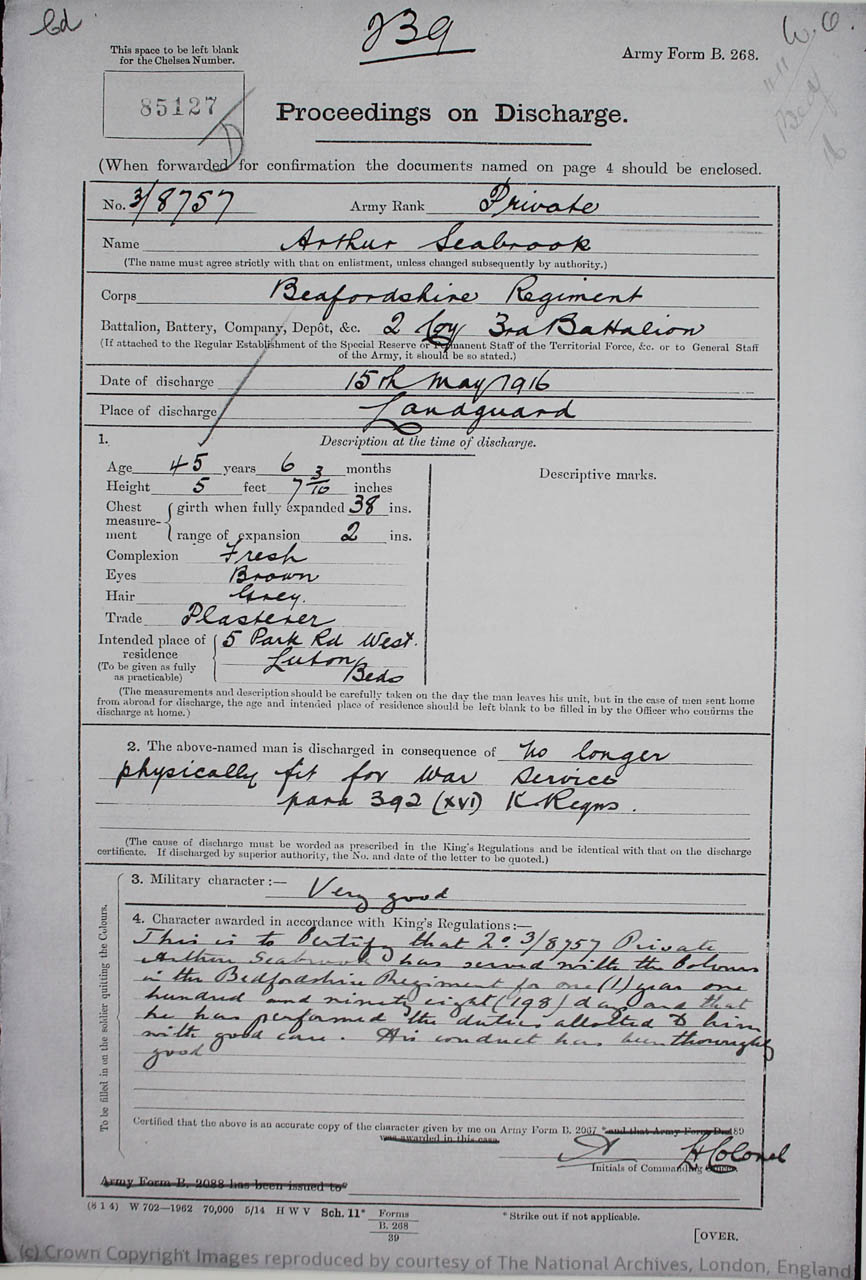 239
This space to be left blank
for the Chelsea Number.
Army Form B. 268.
85127
Proceedings on Discharge.
(When forwarded for confirmation the documents named on page 4 should be enclosed.
No. 3/8757 Army Rank Private
Name Arthur Seabrook
(The name must agree strictly with that on enlistment, unless changed subsequently by authority.)
Corps Bedfordshire Regiment
Battalion, Battery, Company, Depôt, &c. 2 Coy 3rd Battalion
(If attached to the Regular Establishment of the Special Reserve or Permanent Staff of the Territorial Force, &c. or to General Staff
of the Army, it should be so stated.)
Date of discharge 15th May 1916
Place of discharge Landguard
1. Description at the time of discharge.
Age 45 years 6 months
Height 5 feet 7 3/10 inches
Chest measurement girth when fully expanded 38 ins.
range of expansion 2 ins.
Complexion Fresh
Eyes Brown
Hair Grey.
Trade Plasterer
Intended place of residence 5 Park Rd West.
(To be given as fully Luton
as practicable) Beds
Descriptive marks.
(The measurements and description should be carefully taken on the day the man leaves his unit, but in the case of men sent home
from abroad for discharge, the age and intended place of residence should be left blank to be filled in by the Officer who confirms the
discharge at home.)
2. The above-named man is discharged in consequence of no longer
physically fit for War Service
para 392 (xvi) K Regns.
(The cause of discharge must be worded as prescribed in the King's Regulations and be identical with that on the discharge
certificate. If discharged by superior authority, the No. and date of the letter to be quoted.)
To be filled in on the soldier quitting the Colours.
3. Military character :— Very good
4. Character awarded in accordance with King's Regulations :—
This is to Certify that No. 3/8757 Private
Arthur Seabrook has served with the Colours
in the Bedfordshire Regiment for one (1) year one
hundred and ninety eight (198) days and that
he has performed the duties allotted to him
with good care. His conduct has been thoroughly
good
Certified that the above is an accurate copy of the character given by me on Army Form B. 2067 *and that Army Form D. 489
was awarded in this case.
Lt Colonel
Initials of Commanding Officer.
Army Form B. 2088 has been issued to*
(8 1 4) W 702—1962 70,000 5/14 H W V Sch. 11* Forms
B. 268
39
* Strike out if not applicable.
[OVER.
(c) Crown Copyright Images reproduced by courtesy of The National Archives, London, England